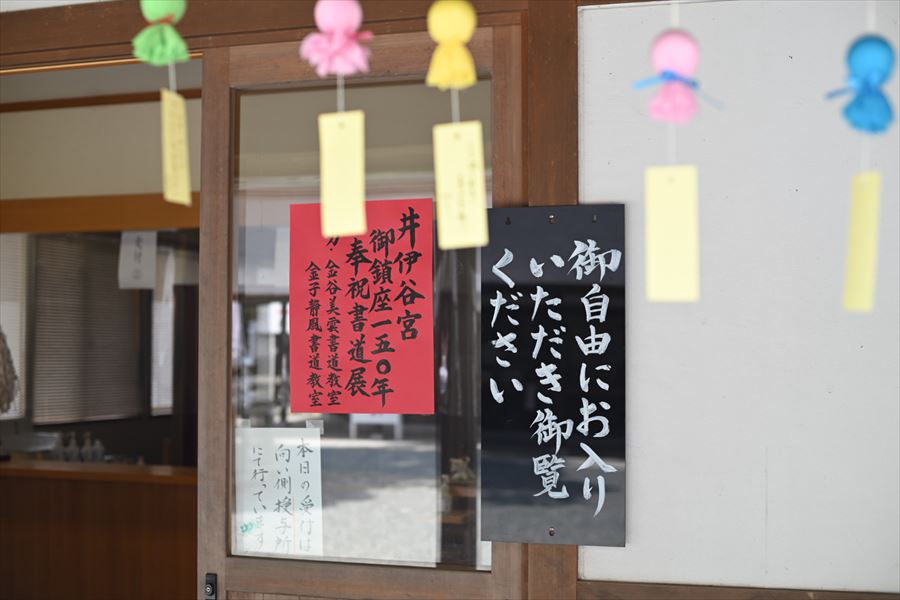 井伊谷宮
御鎮座一五〇年
奉祝書道展
金谷美雲書道教室
金子静風書道教室
御自由にお入り
いただき御覧
ください
本日の受付は
向い側授与所
にて行っています